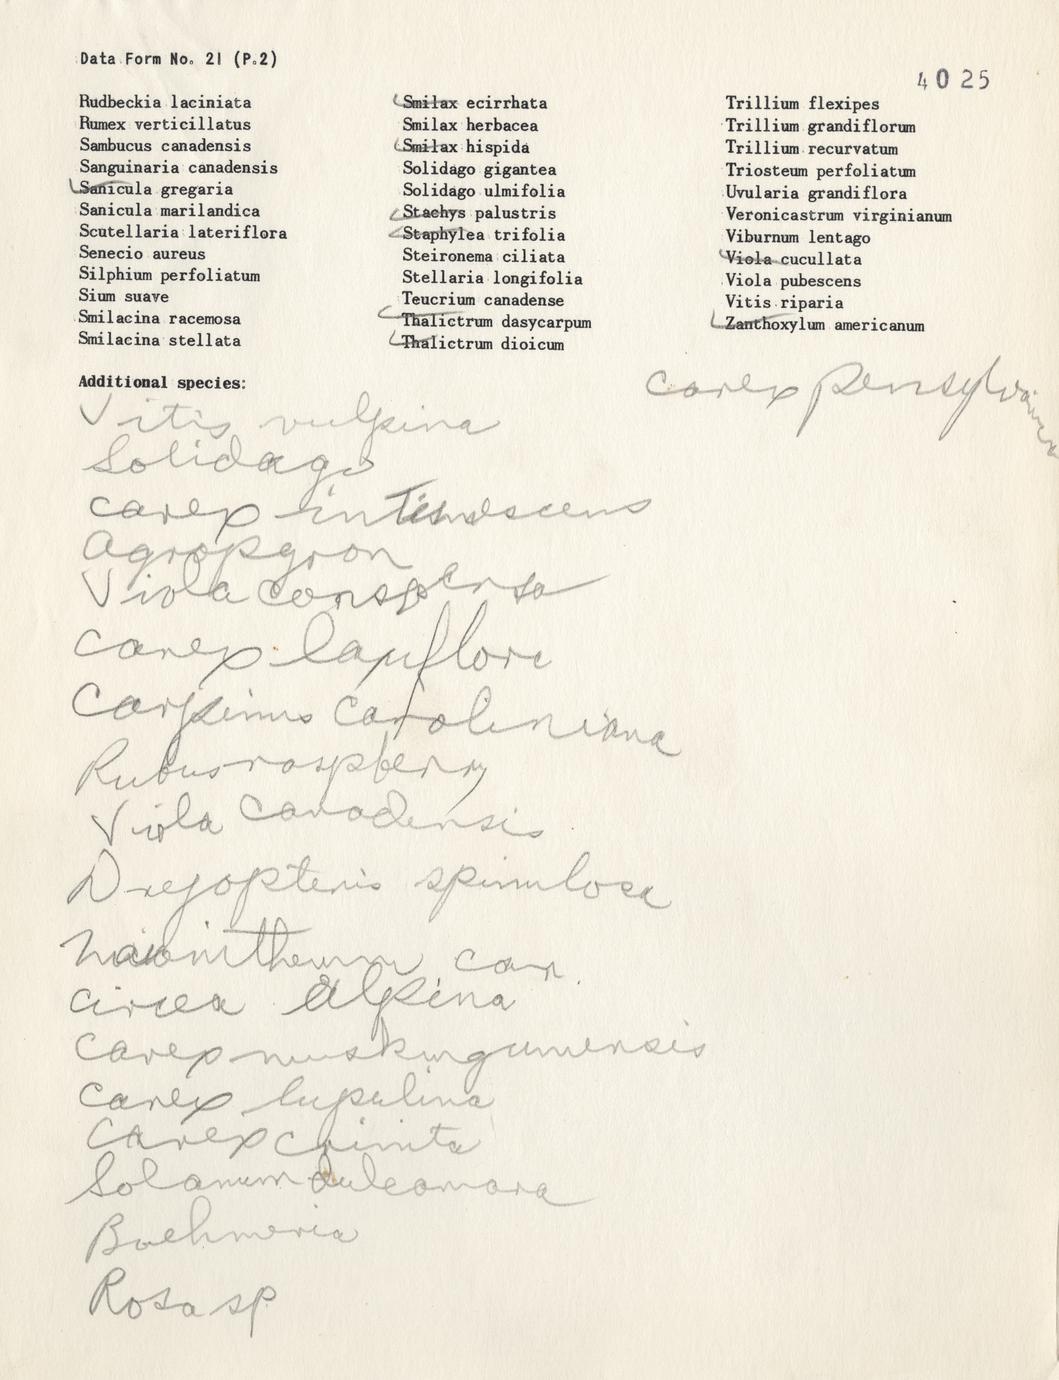 Data Form No. 21 (P.2)
4025
Rudbeckia laciniata
Rumex verticillatus
Sambucus canadensis
Sanguinaria canadensis
Sanicula gregaria
Sanicula marilandica
Scutellaria lateriflora
Senecio aureus
Silphium perfoliatum
Sium suave
Smilacina racemosa
Smilacina stellata
Smilax ecirrhata
Smilax herbacea
Smilax hispida
Solidago gigantea
Solidago ulmifolia
Stachys palustris
Staphylea trifolia
Steironema ciliata
Stellaria longifolia
Teucrium canadense
Thalictrum dasycarpum
Thalictrum dioicum
Trillium flexipes
Trillium grandiflorum
Trillium recurvatum
Triosteum perfoliatum
Uvularia grandiflora
Veronicastrum virginianum
Viburnum lentago
Viola cucullata
Viola pubescens
Vitis riparia
Zanthoxylum americanum
Additional species:
carex pensylvanica
Vitis vulpina
Solidago
carex intumescens
Agropyron
Viola conspersa
carex laxiflora
Carpinus caroliniana
Rubus raspberry
Viola canadensis
Dryopteris spinulosa
can.
circea alpina
carex muskingumensis
carex lupulina
Carex crinita
Solanum dulcamara
Boehmeria
Rosa sp